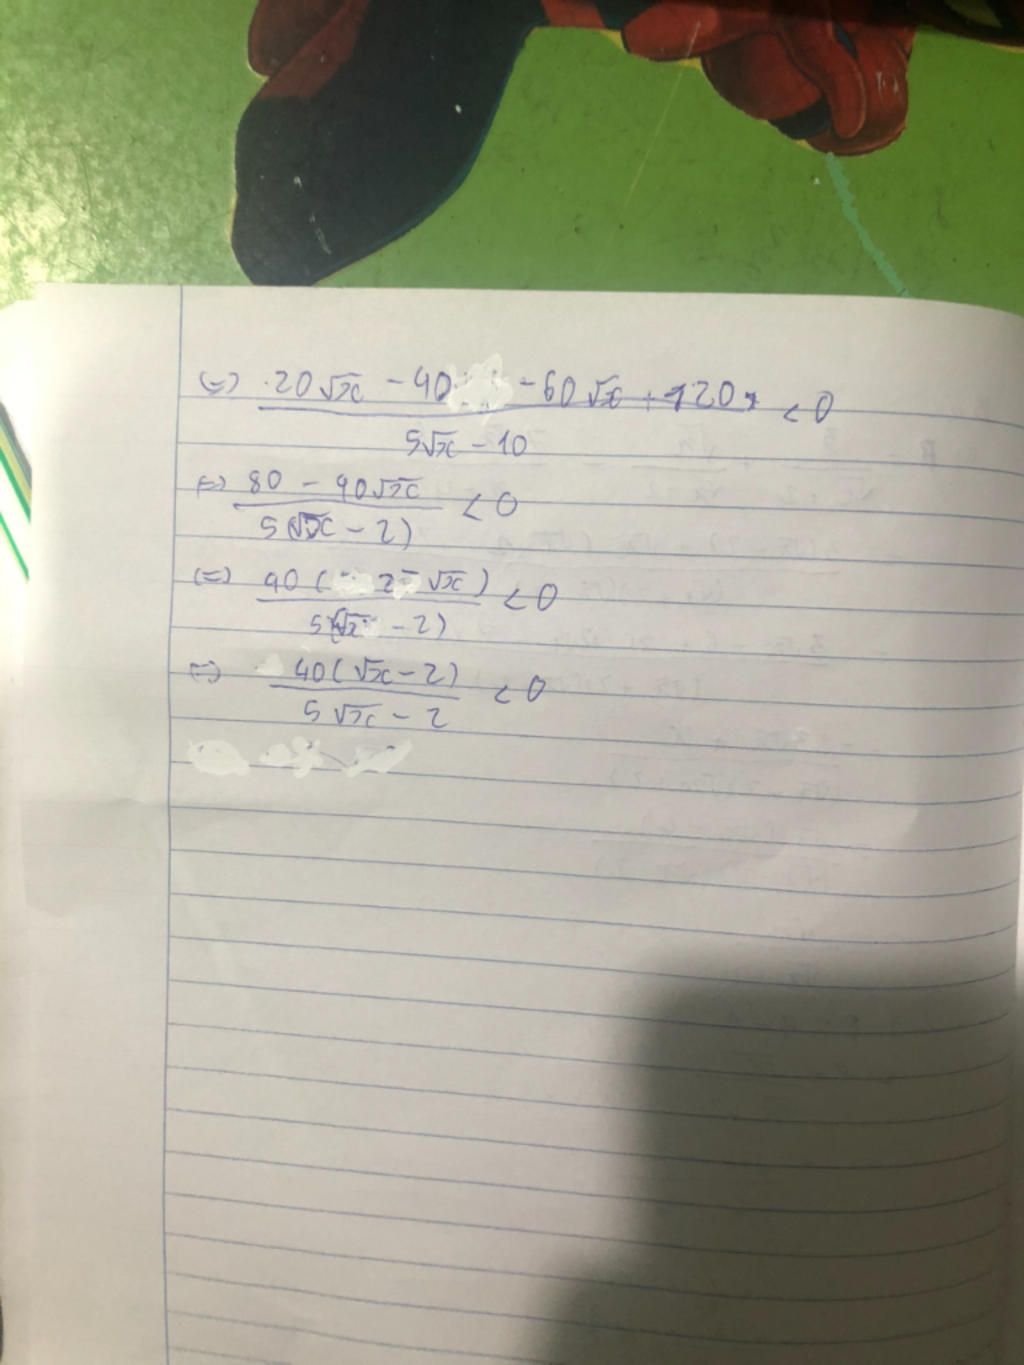 (=) 20√x - 40 - 60√x + 120 < 0
5√x - 10
(=) 80 - 40√x < 0
5(√x - 2)
(=) 40( 2 - √x) < 0
5(√x - 2)
(=) 40(√x - 2) < 0
5√x - 2